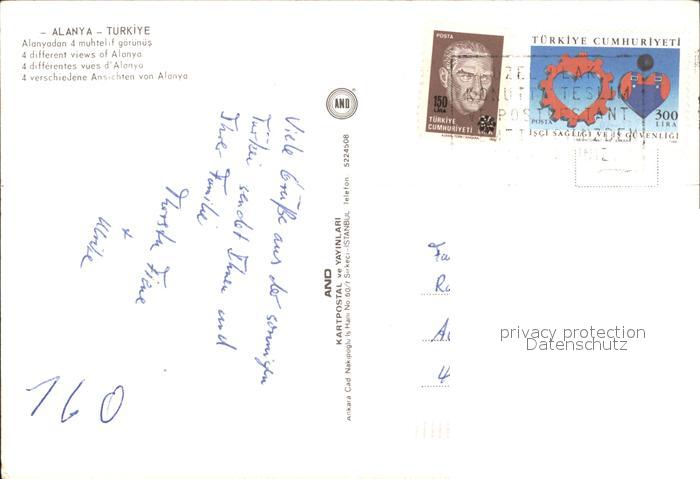 - ALANYA - TURKİYE
Alanyadan 4 muhtelif görünüş
4 different views of Alanya
4 différentes vues d'Alanya
4 verschiedene Ansichten von Alanya
AND
POSTA
150
LIRA
TÜRKİYE
CUMHURİYETİ
LIRA
TÜRKİYE CUMHURİYETİ
POSTA
300
LIRA
İŞÇİ SAĞLIĞI VE İŞ GÜVENLİĞİ
Viele Grüße aus der sonnigen
Türkei sendet Ihnen und
Ihrer Familie
+
Ulrike
160
AND
KARTPOSTAL ve YAYINLARI
Ankara Cad. Nakipoğlu İş Hanı No.60/7 Sirkeci-İSTANBUL Telefon: 5224508
Fa
Ra
4
privacy protection
Datenschutz